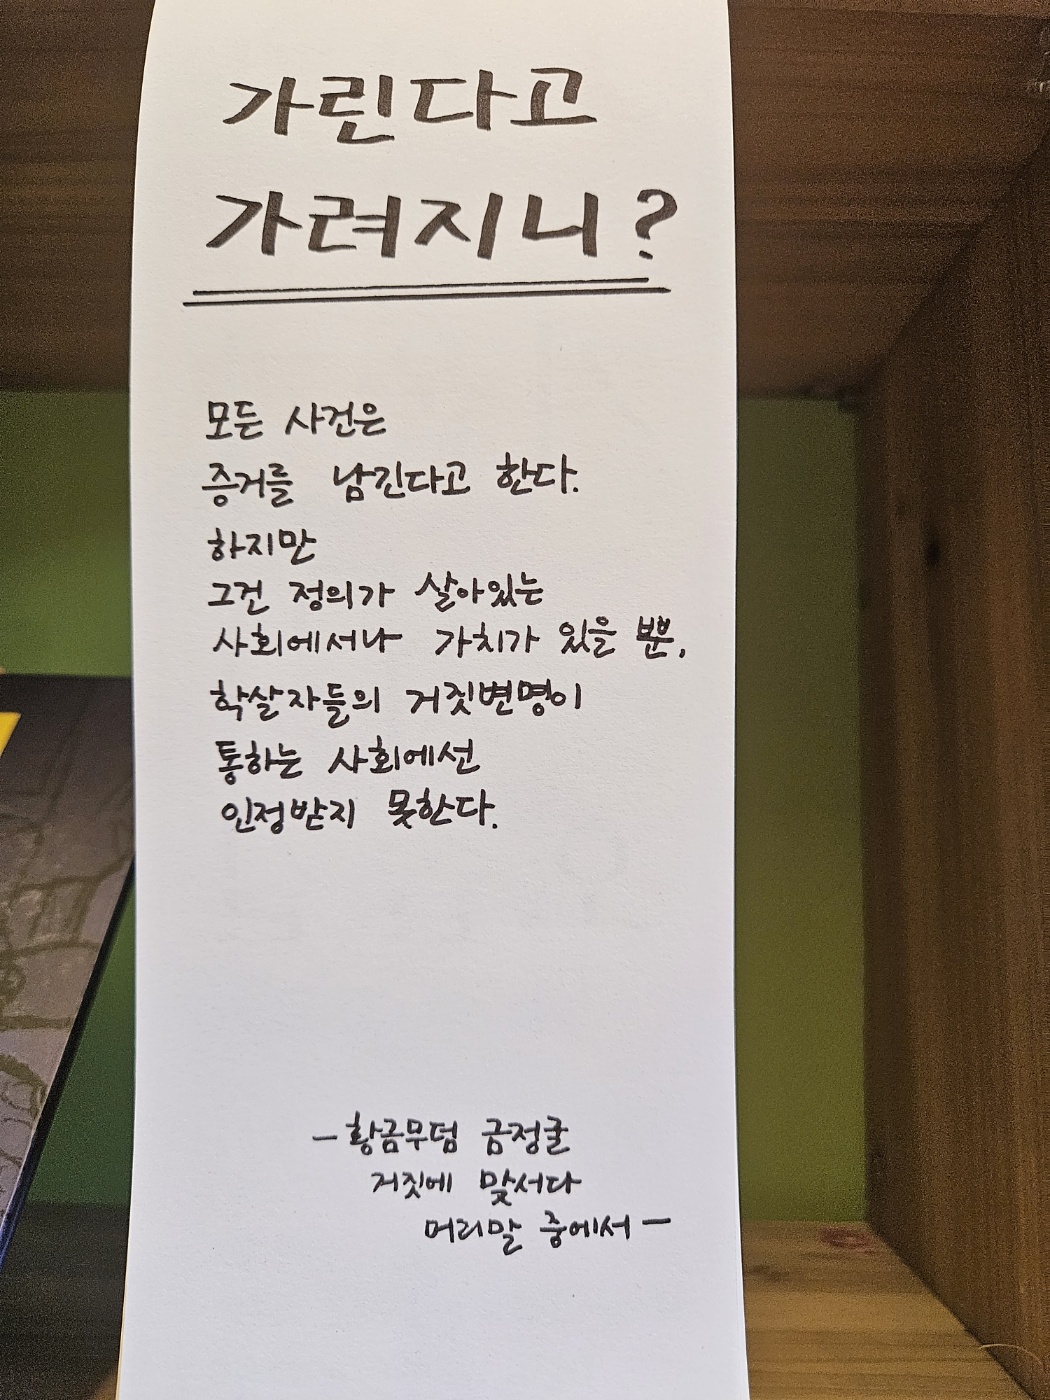 가린다고
가려지니?
모든 사건은
증거를 남긴다고 한다.
하지만
그건 정의가 살아있는
사회에서나 가치가 있을 뿐,
학살자들의 거짓변명이
통하는 사회에선
인정받지 못한다.
- 황금무덤 금정굴
거짓에 맞서다
머리말 중에서 -